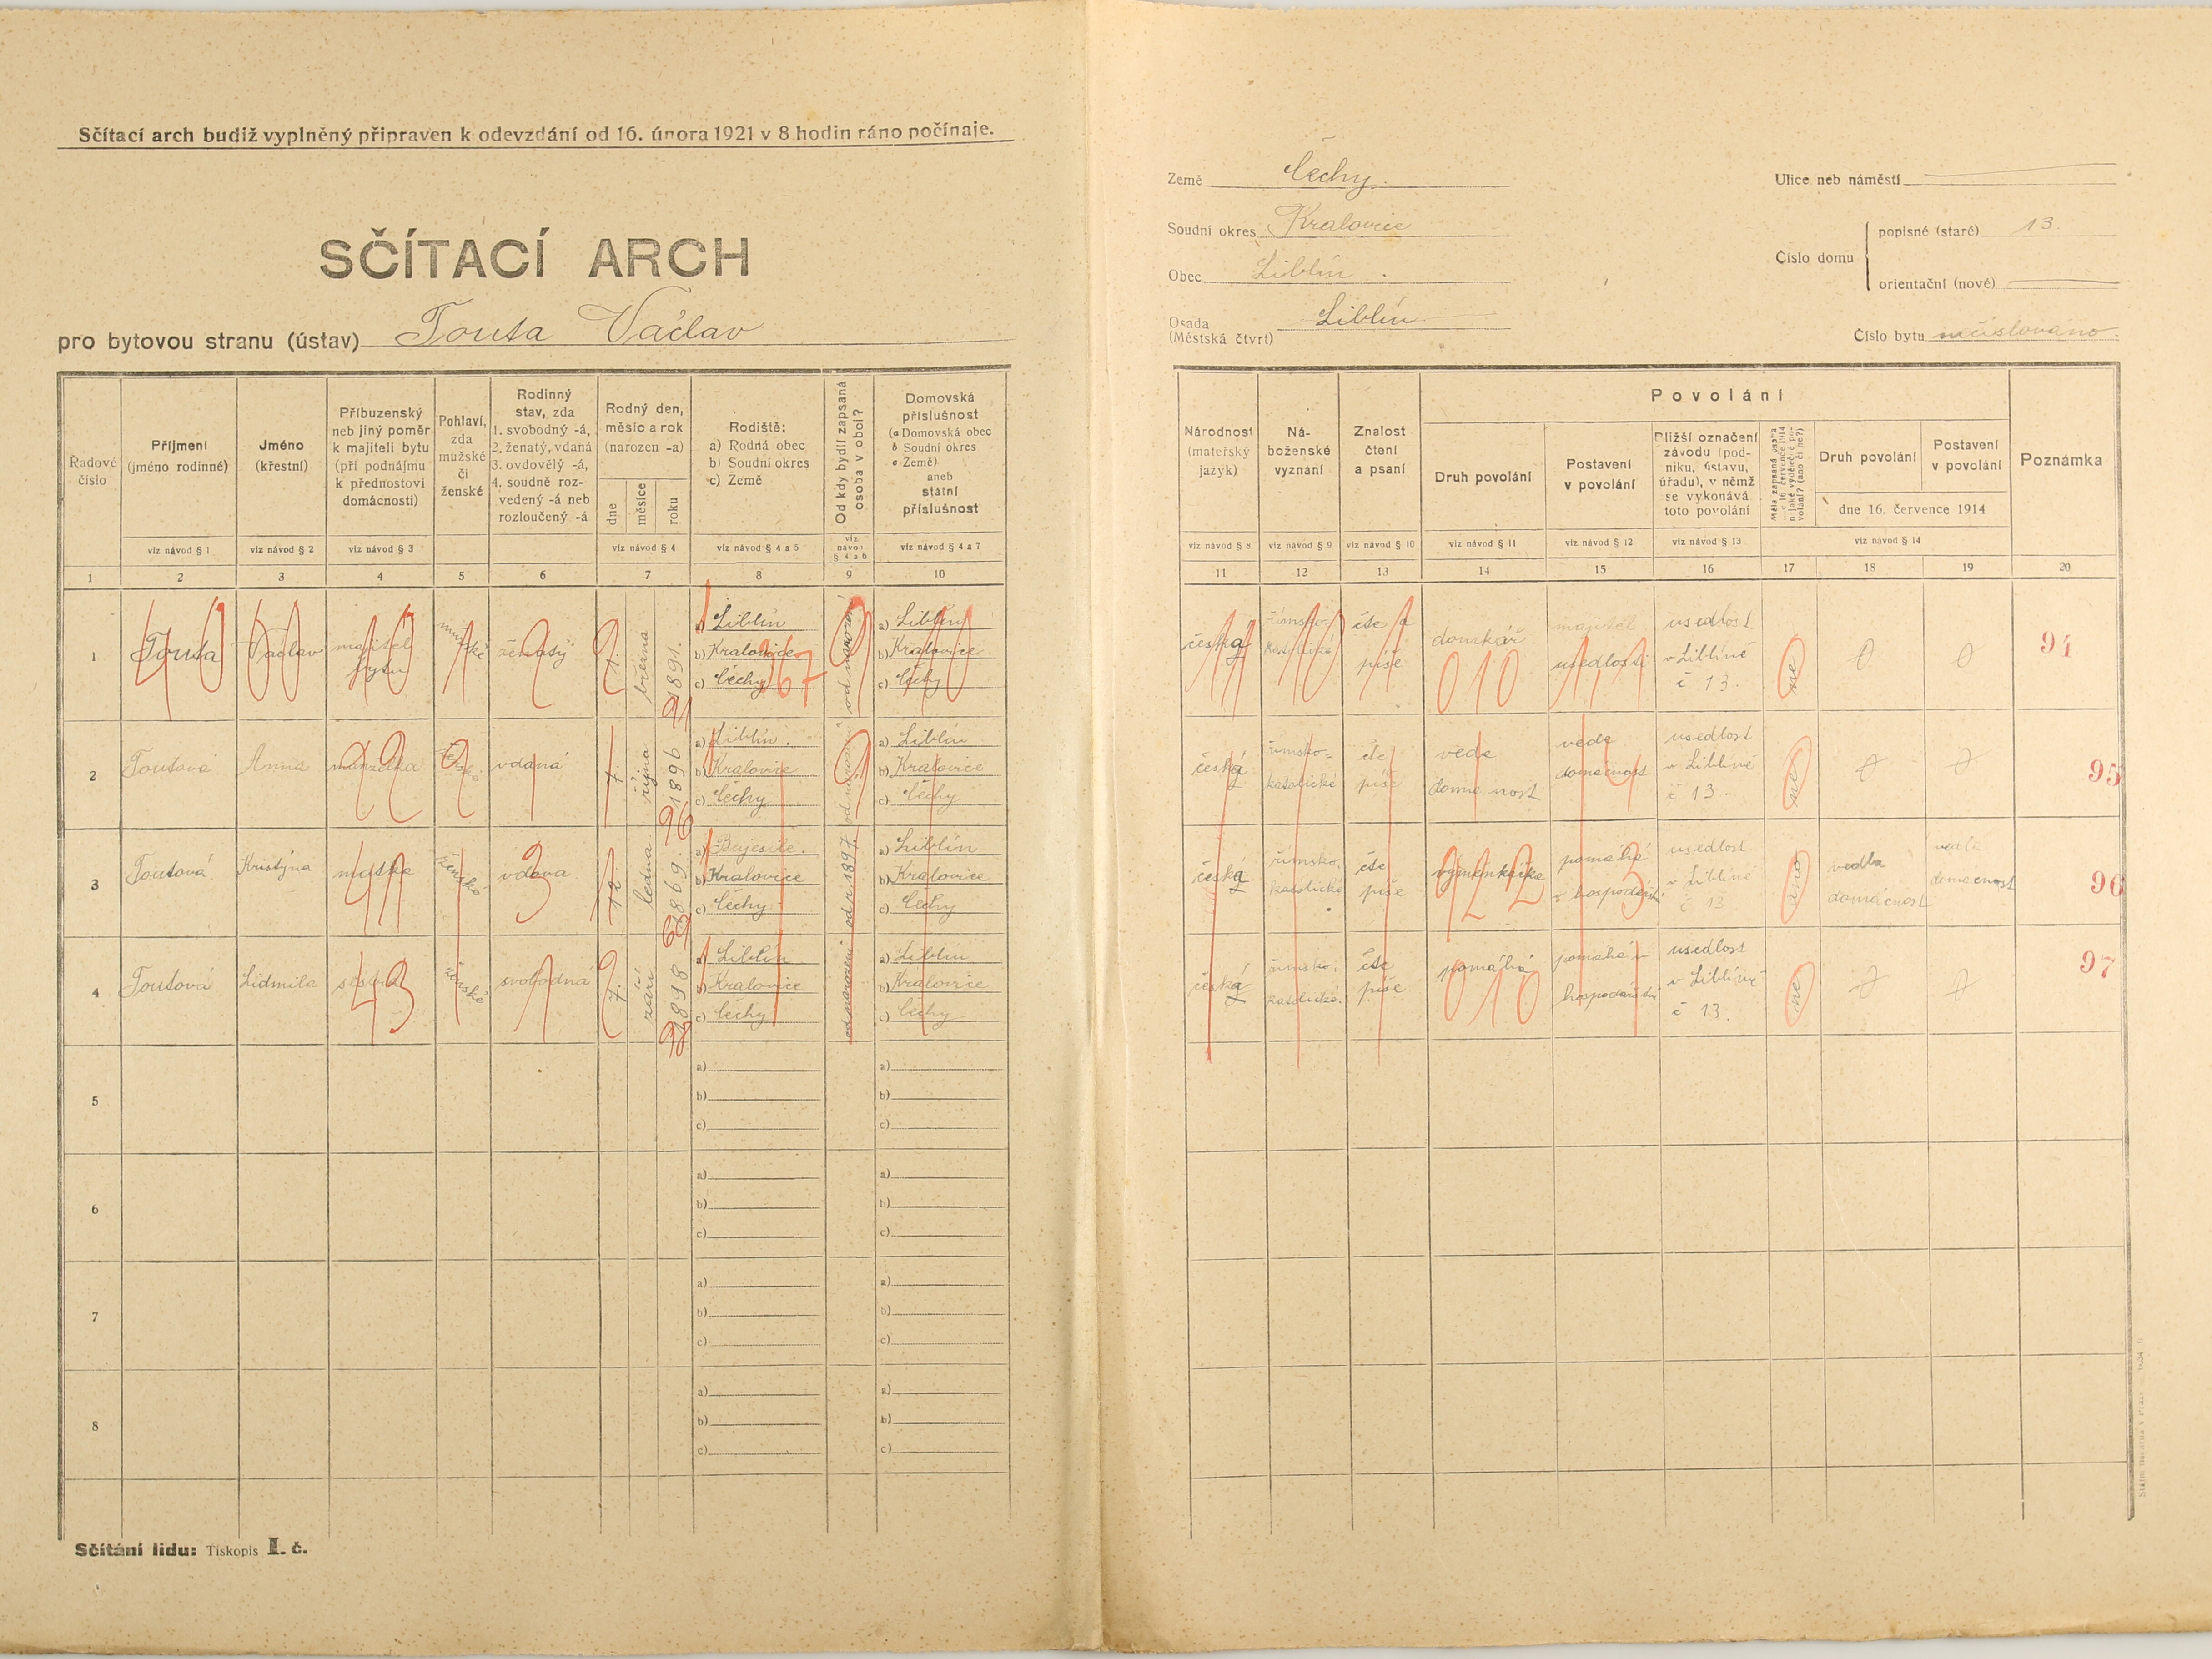 Sčítací arch budiž vyplněný připraven k odevzdání od 16. února 1921 v 8 hodin ráno počínaje.
SČÍTACÍ ARCH
pro bytovou stranu (ústav) Touta Václav
Země Čechy.
Soudní okres Kralovice
Obec Liblín.
Osada Liblín
(Městská čtvrt)
Ulice neb náměstí
Číslo domu
popisné (staré) 13.
orientační (nové)
Číslo bytu nečíslováno
Řadové číslo
Příjmení (jméno rodinné)
Jméno (křestní)
Příbuzenský neb jiný poměr k majiteli bytu (při podnájmu k přednostovi domácnosti)
Pohlaví, zda mužské či ženské
Rodinný stav, zda 1. svobodný -á, 2. ženatý, vdaná 3. ovdovělý -á, 4. soudně rozvedený -á neb rozloučený -á
Rodný den, měsíc a rok (narozen -a)
dne měsíce roku
Rodiště: a) Rodná obec b) Soudní okres c) Země
Od kdy bydlí zapsaná osoba v obci?
Domovská příslušnost (a Domovská obec b Soudní okres c Země) aneb státní příslušnost
viz návod § 1 viz návod § 2 viz návod § 3 viz návod § 4 viz návod § 4 a 5 viz návod § 4 a 6 viz návod § 4 a 7
1 2 3 4 5 6 7 8 9 10
Národnost (mateřský jazyk)
Náboženské vyznání
Znalost čtení a psaní
Povolání
Druh povolání
Postavení v povolání
Bližší označení závodu (podniku, ústavu, úřadu), v němž se vykonává toto povolání
Druh povolání
Postavení v povolání
dne 16. července 1914
Poznámka
viz návod § 8 viz návod § 9 viz návod § 10 viz návod § 11 viz návod § 12 viz návod § 13 viz návod § 14
11 12 13 14 15 16 17 18 19 20
1 Touta Václav majitel bytu mužské ženatý března 1891.
a) Liblín
b) Kralovice
c) Čechy
od narození
a) Liblín
b) Kralovice
c) Čechy
česká římsko-katolické čte a píše domkář majitel usedlosti usedlost v Liblíně č 13. ne 0 0 94
2 Toutová Anna manželka ženské vdaná 7. října 1896
a) Liblín.
b) Kralovice
c) Čechy
od narození
a) Liblín
b) Kralovice
c) Čechy
česká římsko-katolické čte píše vede domacnost vede domacnost usedlost v Liblíně č 13. ne 0 0 95
3 Toutová Kristýna matka ženské vdova 12. ledna 1869.
b) Kralovice
c) Čechy
od r. 1897
a) Liblín
b) Kralovice
c) Čechy
česká římsko-katolické čte píše výmenkářka pomáhá v hospodářství usedlost v Liblíně č 13 ano vedla domácnost vedla domacnost 96
4 Toutová Lidmila sestra ženské svobodná 7. září 1898
a) Liblín
b) Kralovice
c) Čechy
od narození
a) Liblín
b) Kralovice
c) Čechy
česká římsko-katolické. čte píše pomáhá pomáhá v hospodářství usedlost v Liblíně č 13. ne 0 0 97
5
a)
b)
c)
a)
b)
c)
6
a)
b)
c)
a)
b)
c)
7
a)
b)
c)
a)
b)
c)
8
a)
b)
c)
a)
b)
c)
Sčítání lidu: Tiskopis I. č.